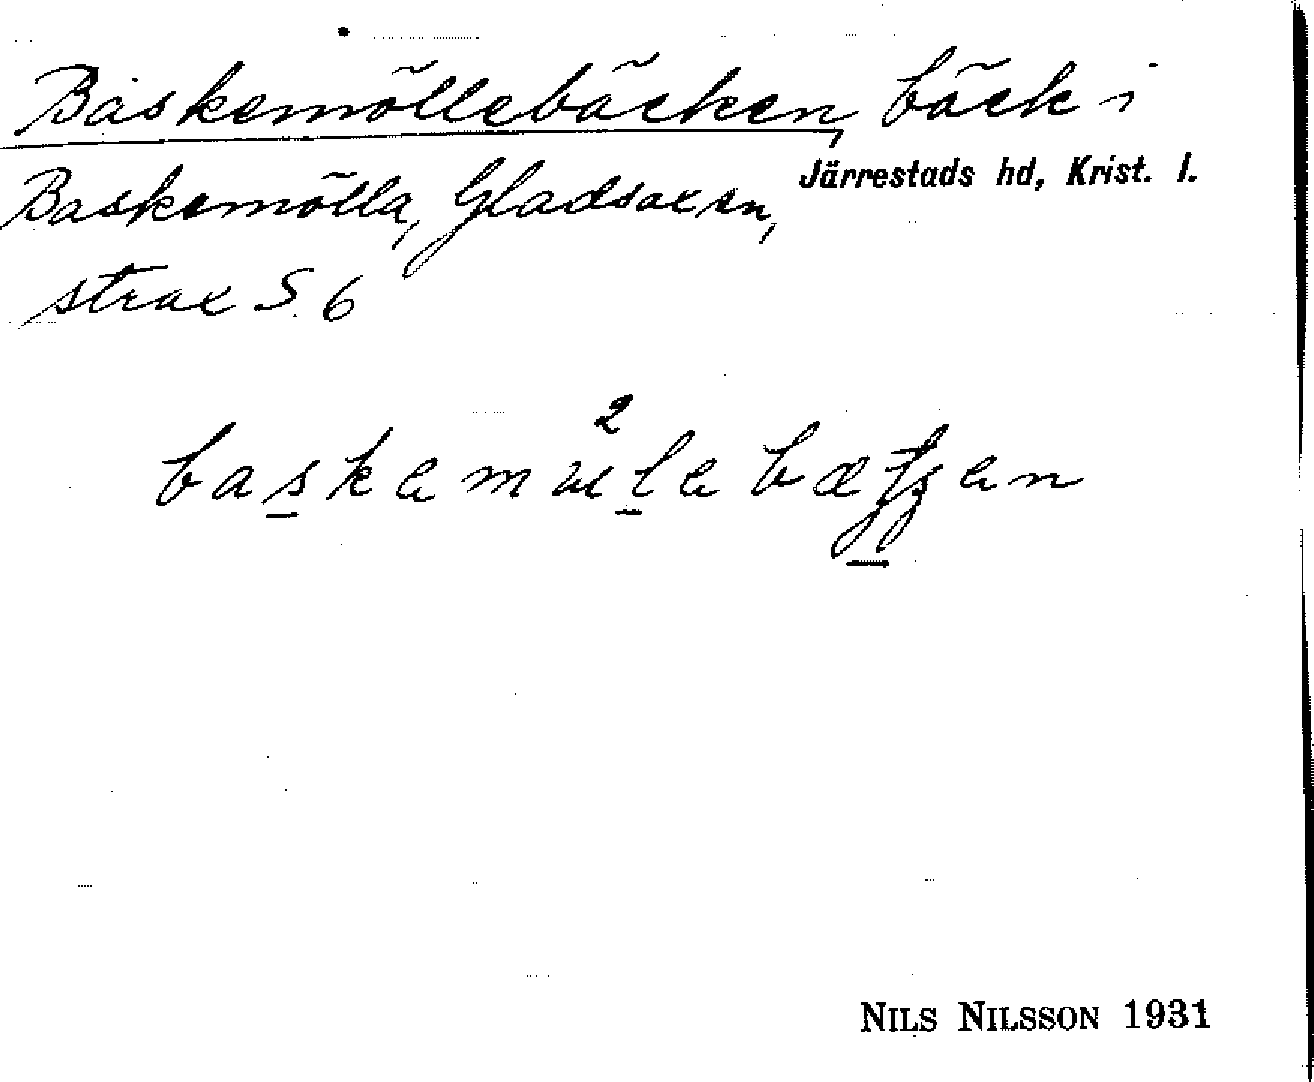 Baskemöllebäcken, bäck i
Baskemölla, Gladsaxen,
Järrestads hd, Krist. l.
strax S. 6
2
NILS NILSSON 1931